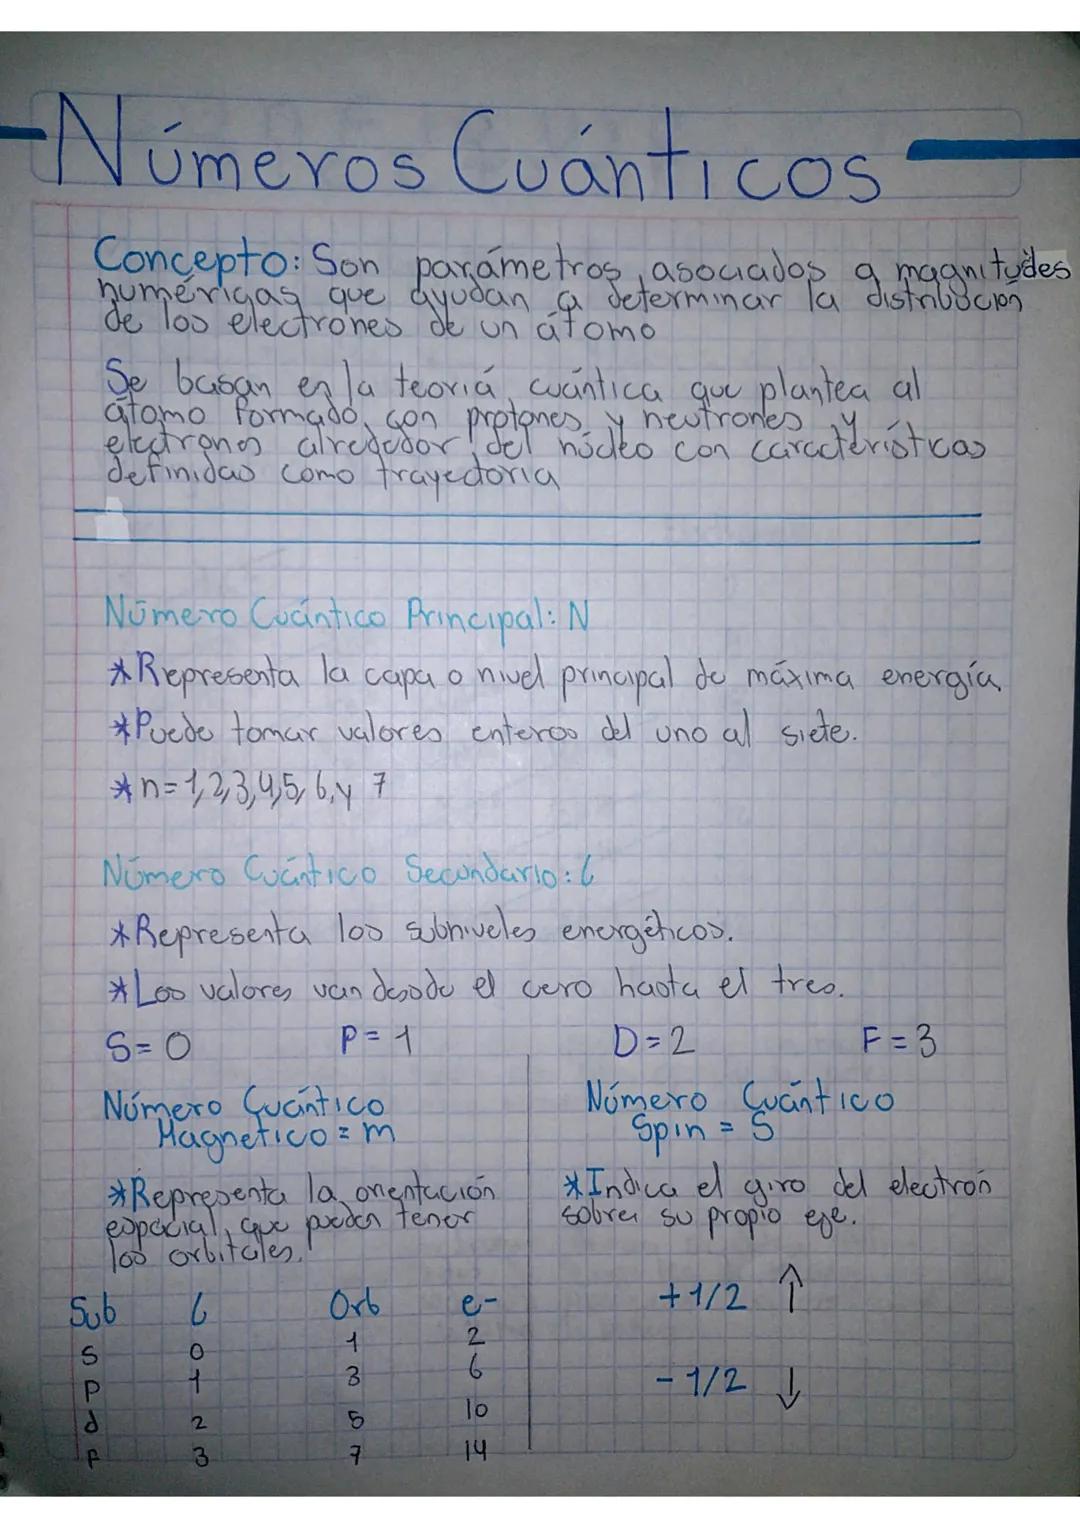 Números Cuánticos
Concepto: Son parámetros asociados a magnitudes
numéricas que ayudan a determinar la distribución
de los electrones de un átomo
Se basan en la teoriá cuántica que plantea al
átomo formado con protones y neutrones y
electrones alrededor del núcleo con características
definidas como trayectoria
Número Cuántico Principal: N
*Representa la capa o nivel principal de máxima energía
*Puede tomar valores enteros del uno al siete.
*n=1,2,3,4,5,6,y 7
Número Cuántico Secundario: l
*Representa los subniveles energéticos.
*Los valores van desde el cero hasta el tres.
S=0 P=1 D=2 F=3
Número Cuántico
Magnetico = m
*Representa la orientación
espacial, que pueden tener
los orbitales.
Sub l Orb e-
S 0 1 2
P 1 3 6
d 2 5 10
F 3 7 14
Número Cuántico
Spin = S
*Indica el giro del electrón
sobre su propio eje.
+1/2 ↑
-1/2 ↓